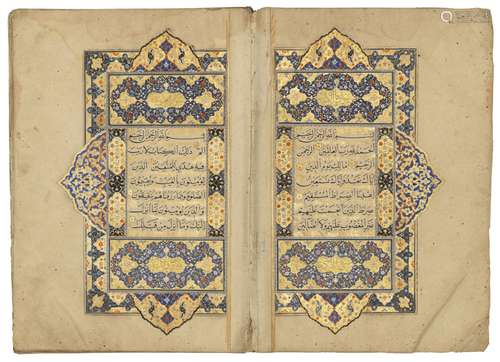 بسم الله الرحمن الرحيم
الحمد لله رب العالمين الرحمن
الرحيم مالك يوم الدين
اياك نعبد واياك نستعين
اهدنا الصراط المستقيم
صراط الذين انعمت عليهم
غير المغضوب عليهم ولا الضالين
بسم الله الرحمن الرحيم
الم ذلك الكتاب لا ريب
فيه هدى للمتقين الذين
يؤمنون بالغيب ويقيمون
الصلوة ومما رزقناهم ينفقون
والذين يؤمنون بما انزل
اليك وما انزل من قبلك